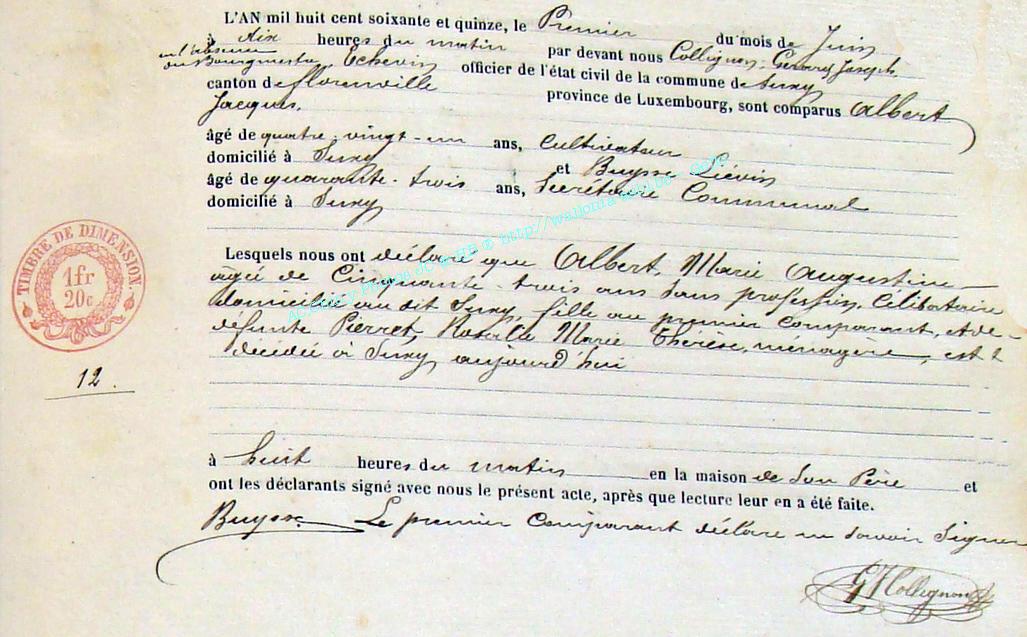 L'AN mil huit cent soixante et quinze, le Premier du mois de Juin
à dix heures du matin par devant nous Collignon, Gérard Joseph,
en l'absence
du Bourgmestre, Echevin officier de l'état civil de la commune de Suxy
canton de florenville province de Luxembourg, sont comparus Albert
Jacques.
âgé de quatre-vingt-un ans, Cultivateur
domicilié à Suxy et Buysse Liévin
âgé de quarante-trois ans, Secrétaire Communal
domicilié à Suxy
Lesquels nous ont déclaré que Albert, Marie Augustine
agée de Cinquante-trois ans sans profession, Célibataire
domiciliée au dit Suxy, fille au premier Comparant, et de
défunte Pierret, Rosalie Marie Thérèse, ménagère, est
décédée à Suxy aujourd'hui
TIMBRE DE DIMENSION
1fr
20c
12.
à huit heures du matin en la maison de son Père et
ont les déclarants signé avec nous le présent acte, après que lecture leur en a été faite.
Buysse Le premier Comparant déclare ne savoir Signer
GJCollignon